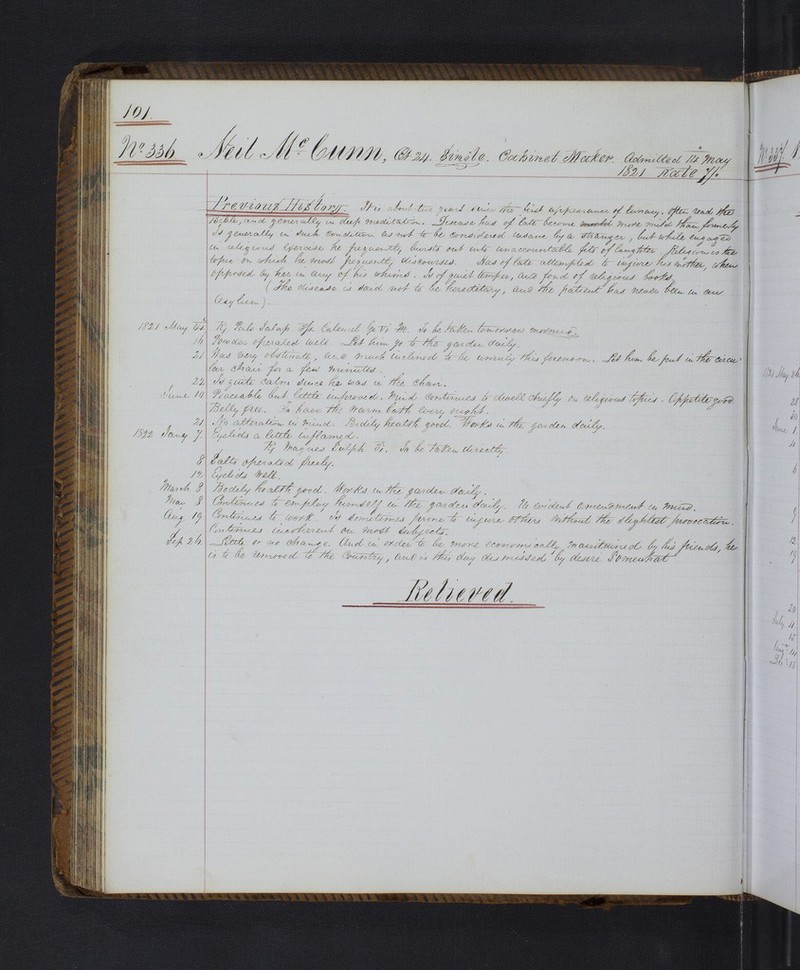 101.
No. 336 Neil McCunn, Æt 24. Single. Cabinet Maker. Admitted 14 May
1821 Rate 7/.
Previous History. It is about two years since the first appearance of lunacy. Often read the
Bible, and generally in deep meditation. Disease has of late become more mild than formerly
Is generally in such condition as not to be considered insane by a stranger, but while engaged
in religious exercise he frequently bursts out into unaccountable fits of laughter. Religion is the
topic on which he most frequently discourses. Has of late attempted to injure his mother, when
opposed by her in any of his whims. Is of quiet temper, and fond of religious books.
(The disease is said not to be hereditary, and the patient has never been in an
asylum).
1821 May 15 Rx Pulv Jalap Calomel Gr vi M. To be taken tomorrow morning
16 Powder operated well. Let him go to the garden daily.
21 Was very obstinate, and much inclined to be unruly this forenoon. Let him be put in the circu-
lar chair for a few minutes.
22 Is quite calm since he was in the chair.
June 10 Placeable but little improved. Mind continues to dwell chiefly on religious topics. Appetite good
Belly free. To have the warm bath every night.
21 No alteration in mind. Bodily health good. Works in the garden daily.
1822 Jany 7. Eyelids a little inflamed.
Rx Magnes Sulph To be taken directly
8 Salts operated freely.
12 Eyelids well.
March 8 Bodily health good. Works in the garden daily.
May 8 Continues to employ himself in the garden daily. No evident amendment in mind.
Aug 19 Continues to work. is sometimes prone to injure others without the slightest provocation.
Continues incoherent on most subjects.
Sep 26 Little or no change. And in order to be more economically maintained by his friends, he
is to be removed to the Country, and is this day dismissed by desire Somewhat
Relieved.
No 337